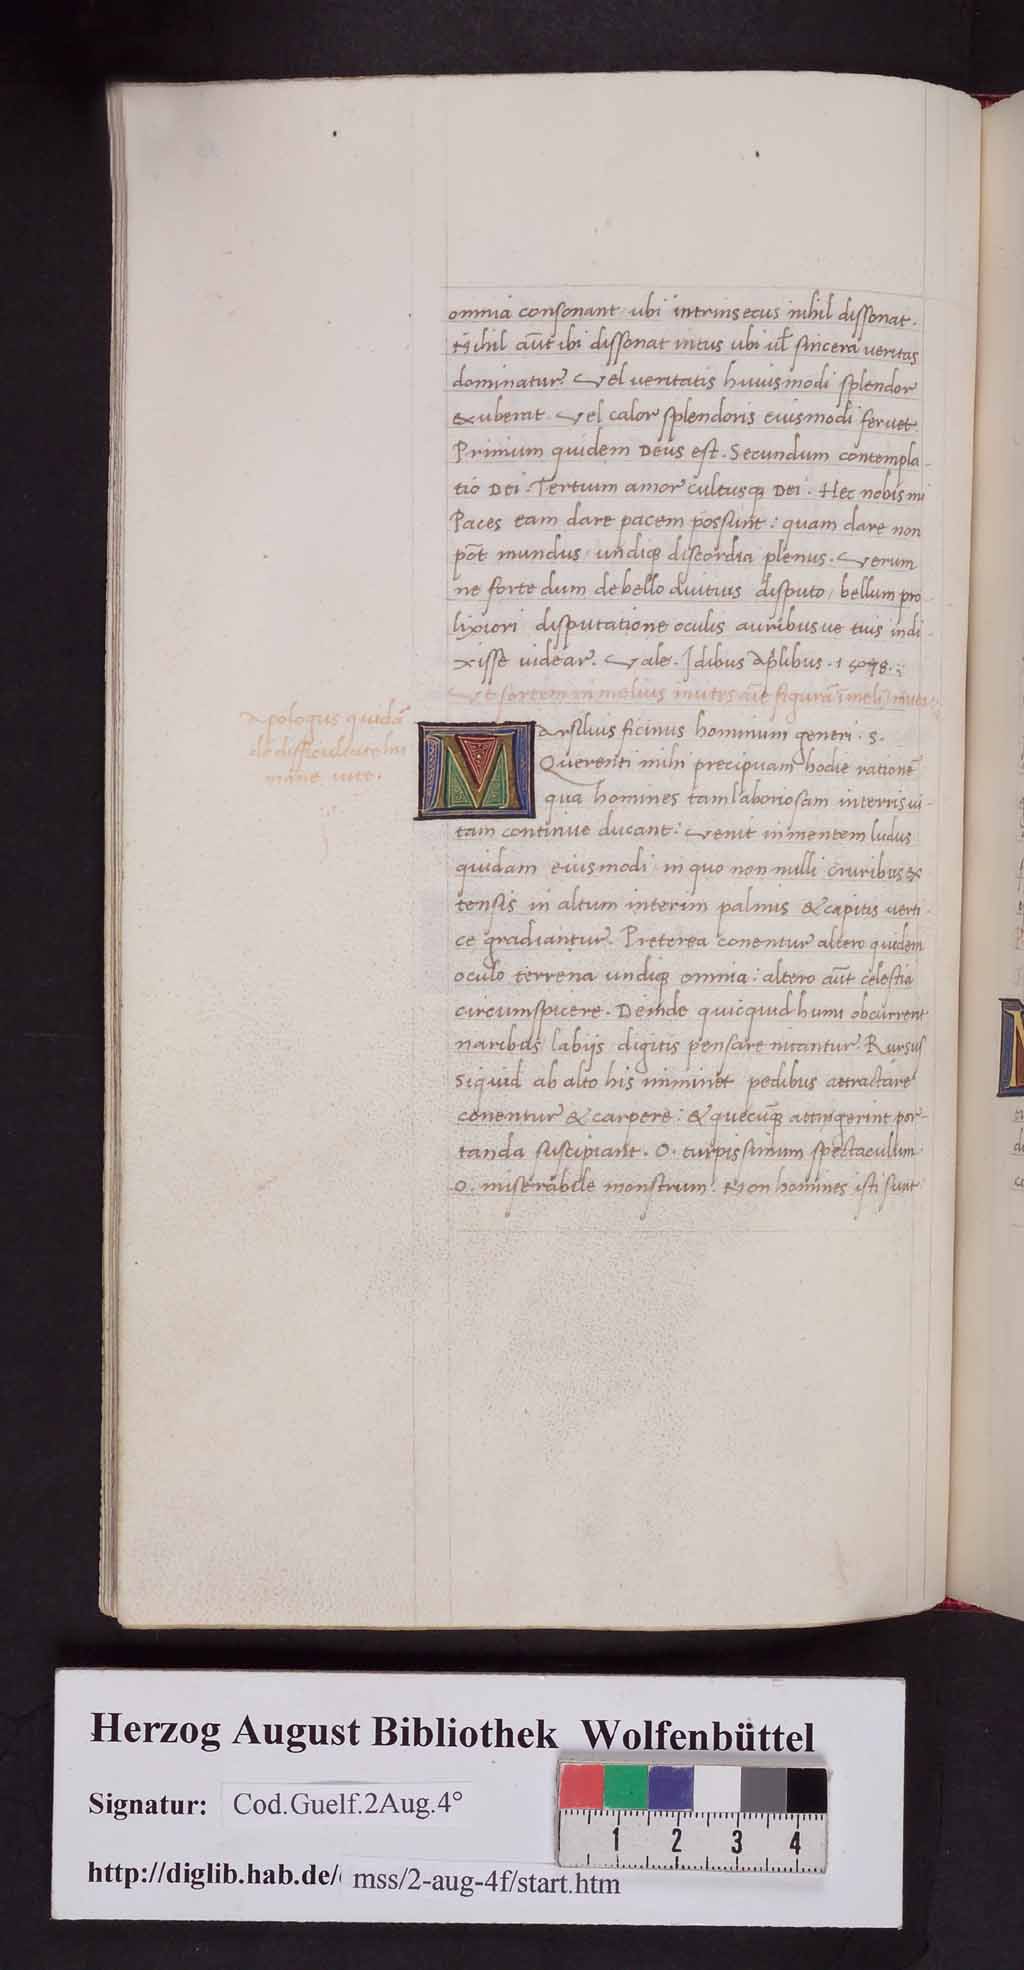 omnia consonant ubi intrinsecus nihil dissonat.
Nihil aūt ibi dissonat intus ubi ul̄ sincera veritas
dominatur? Vel veritatis huiusmodi splendor
exuberat. Vel calor splendoris eiusmodi feruet.
Primum quidem Deus est. Secundum contempla-
tio Dei. Tertium amor cultusq Dei. Hec nobis mi
Paces eam dare pacem possunt: quam dare non
pōt mundus undiq discordia plenus. Verum
ne forte dum de bello diutius disputo, bellum pro
lixiori disputatione oculis auribusue tuis indi-
xisse uidear. Vale. Idibus Aplibus. 1
Vt sortem in melius mutes
Apologus quidā
de difficultate hu
mane uite.
Marsilius ficinus hominum generi. s.
Querenti mihi precipuam hodie rationē
qua homines tam laboriosam in terris ui-
tam continue ducant: Venit in mentem ludus
quidam eiusmodi in quo non nulli cruribus ex
tensis in altum interim palmis & capitis verti-
ce gradiantur. Preterea conentur altero quidem
oculo terrena undiq omnia: altero aūt celestia
circumspicere. Deinde quicquid humi obcurrent
naribus labijs digitis pensare nitantur. Rursus
Siquid ab alto his iminet pedibus attractare
conentur & carpere: & quecūq attingerint por-
tanda suscipiant. O. turpissimum spectaculum
O. miserabile monstrum. Non homines isti sunt
Herzog August Bibliothek Wolfenbüttel
Signatur: Cod.Guelf.2Aug.4°
http://diglib.hab.de/ mss/2-aug-4f/start.htm
1 2 3 4